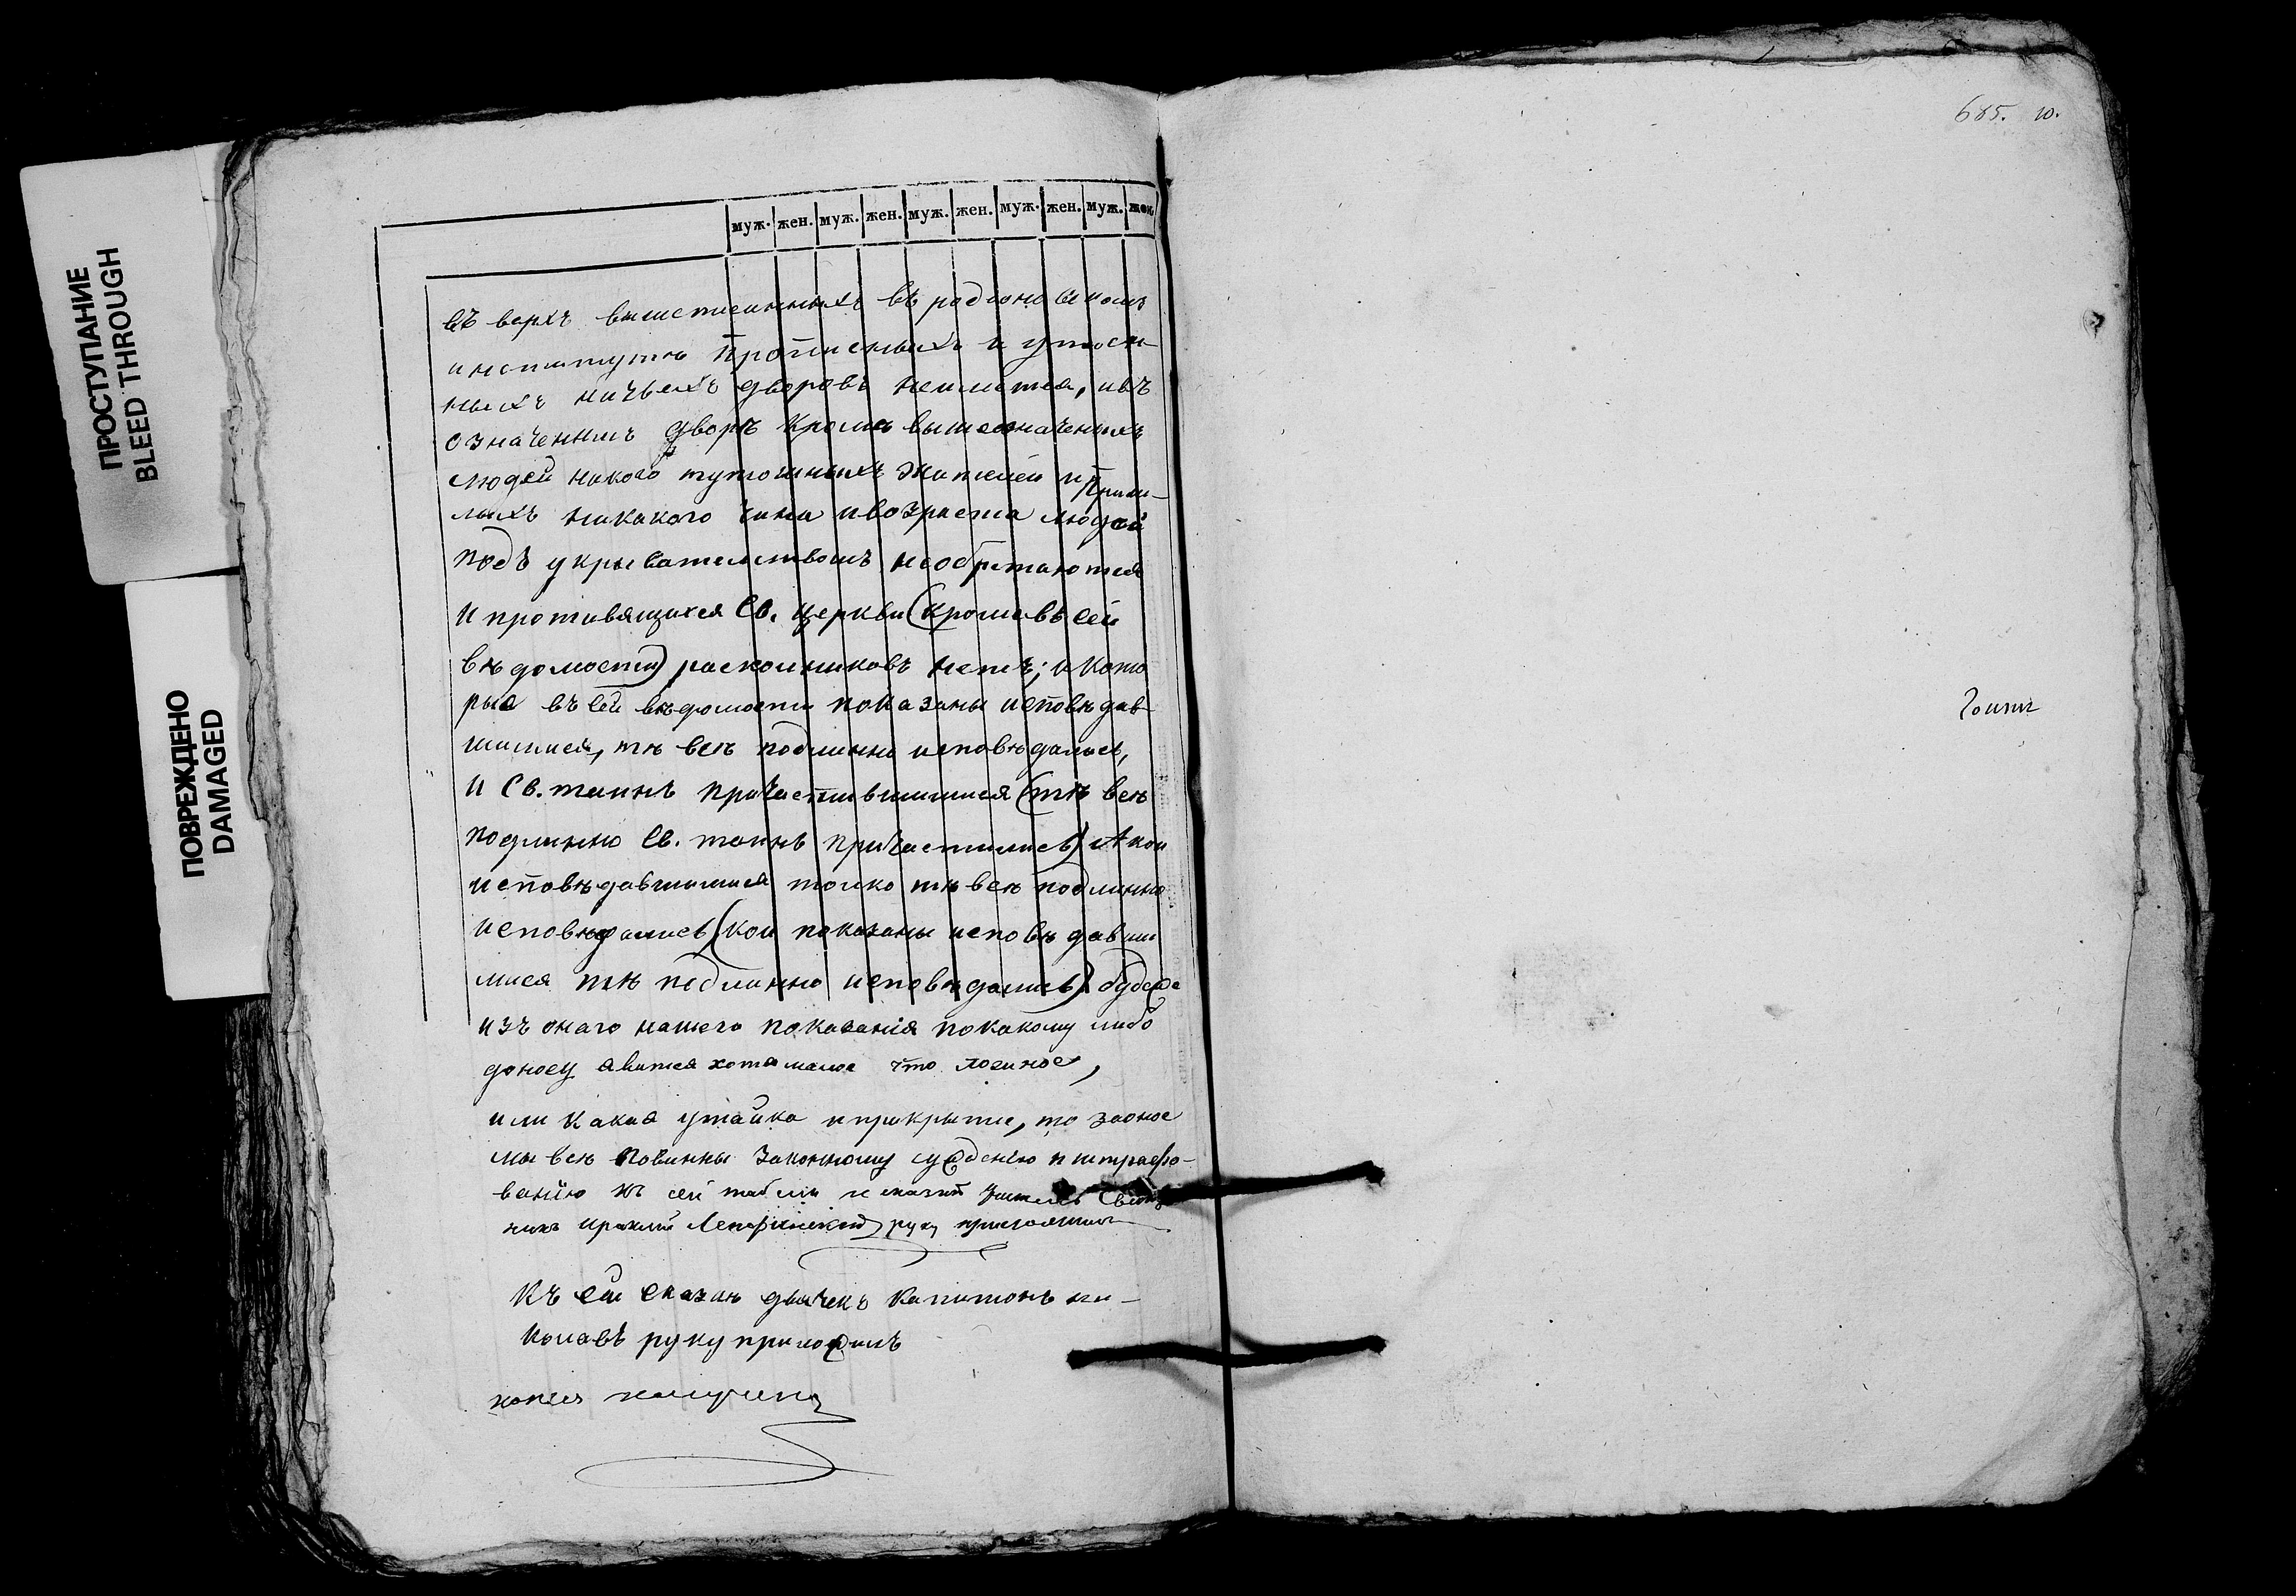 ПРОСТУПАНИЕ
BLEED THROUGH
ПОВРЕЖДЕНО
DAMAGED
муж. жен. муж. жен. муж. жен. муж. жен. муж. жен.
въ верхъ въ родионовскомъ
институтѣ прописныхъ и утаен-
ныхъ ничьихъ дворовъ неимѣтся, ивъ
означеннымъ дворѣ кроме вышеозначенныхъ
людей никого тутошныхъ жителей и пришѣ-
лыхъ никакого чина ивозраста людей
подъ укрывателствомъ необрѣтаются
и противящихся Св. церкви (кромевъ сей
вѣдомости) раскольниковъ нетъ; и кото
рые въ сей вѣдомости показаны исповѣдав-
шимися, тѣ всѣ подлинно исповѣдались,
и Св. таинъ причастившимися (тѣ всѣ
подлинно Св. таинъ причастились) А кои
исповѣдавшимися толко тѣ всѣ подлинно
исповѣдались (кои показаны исповѣдавши
мися тѣ подлинно исповѣдались) буде же
изъ онаго нашего показанія покакому либо
доносу явится хотя малое что ложное,
или какая утайка и прикрытие, то заоное
мы всѣ повинны законному сужденію и штрафо-
ванію къ сей
руку приложилъ
Къ сей сказкѣ дьячекъ Капитонъ
руку приложилъ
685. 10.